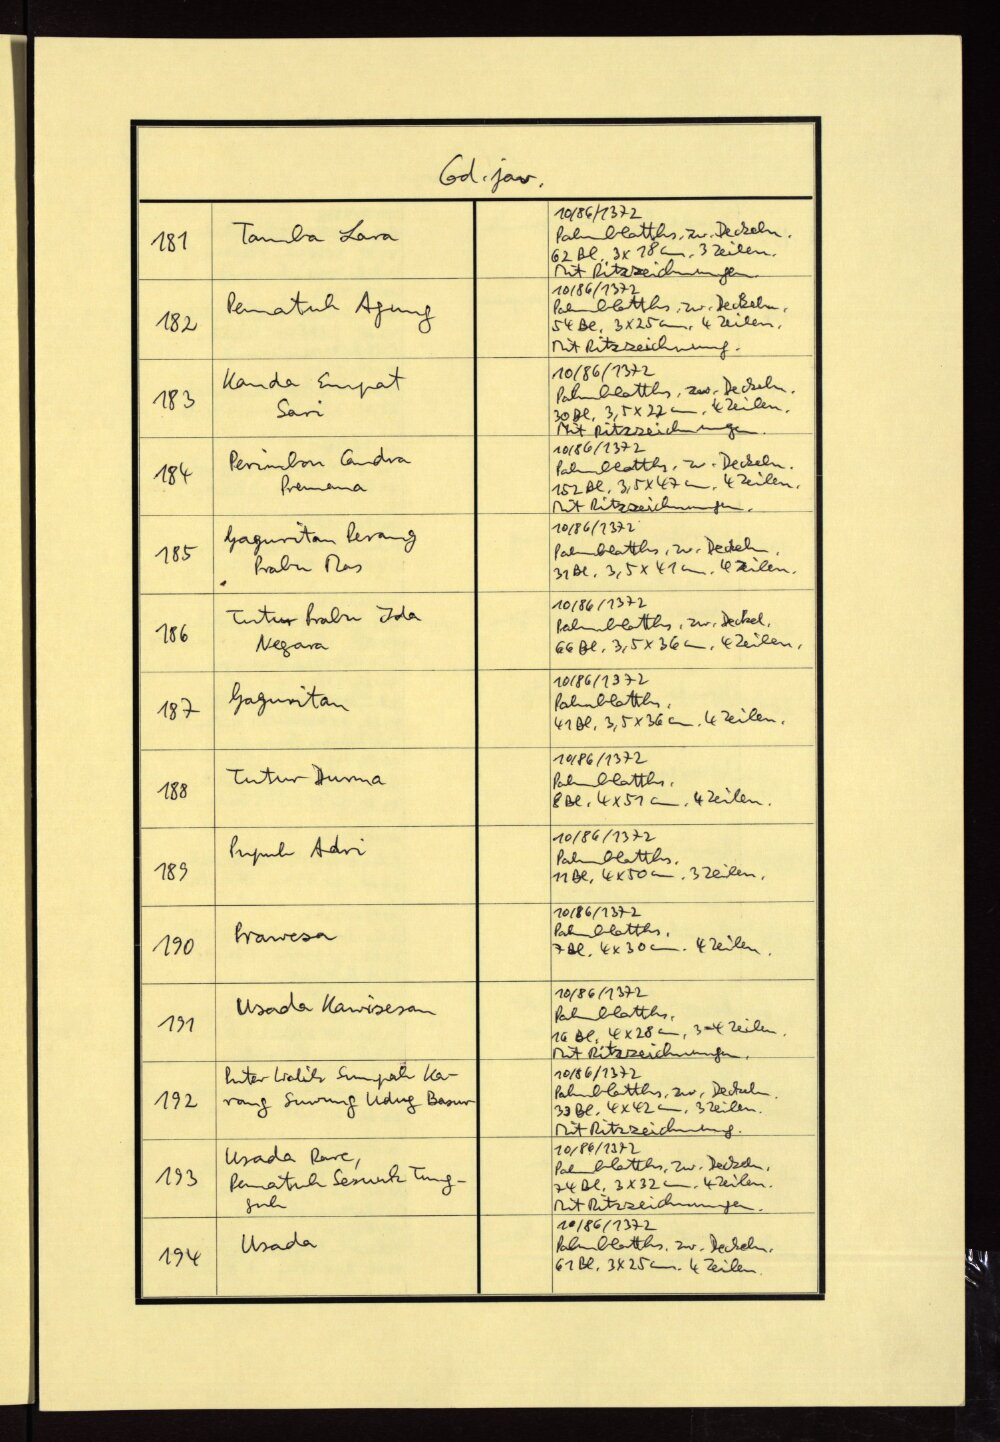 Cd. jav.
181
Tamba Lara
10/86/1372
Palmblatths. zw. Deckeln.
62 Bl. 3x18 cm, 3 Zeilen.
Mit Ritzzeichnungen.
182
Pematuh Agung
10/86/1372
Palmblatths. zw. Deckeln.
54 Bl. 3x25 cm, 4 Zeilen.
Mit Ritzzeichnung.
183
Kanda Empat
Sari
10/86/1372
Palmblatths. zw. Deckeln.
30 Bl. 3,5x22 cm, 4 Zeilen.
Mit Ritzzeichnungen.
184
Perimbon Candra
Premana
10/86/1372
Palmblatths. zw. Deckeln.
152 Bl. 3,5x47 cm, 4 Zeilen.
Mit Ritzzeichnungen.
185
Gaguritan Perang
Prabu Mas
10/86/1372
Palmblatths. zw. Deckeln.
31 Bl. 3,5x41 cm. 4 Zeilen.
186
Tutur Prabu Ida
Negara
10/86/1372
Palmblatths. zw. Deckel.
66 Bl. 3,5x36 cm. 4 Zeilen.
187
Gaguritan
10/86/1372
Palmblatths.
41 Bl. 3,5x36 cm. 4 Zeilen.
188
Tutur Durma
10/86/1372
Palmblatths.
8 Bl. 4x51 cm. 4 Zeilen.
189
Pupuh Adri
10/86/1372
Palmblatths.
11 Bl. 4x50 cm. 3 Zeilen.
190
Prawesa
10/86/1372
Palmblatths.
7 Bl. 4x30 cm. 4 Zeilen.
191
Usada Kawisesan
10/86/1372
Palmblatths.
16 Bl. 4x28 cm, 3-4 Zeilen.
Mit Ritzzeichnungen.
192
Puter Walik Sumpah Ka-
rang Suwung Udug Basur
10/86/1372
Palmblatths. zw. Deckeln.
33 Bl. 4x42 cm, 3 Zeilen.
Mit Ritzzeichnung.
193
Usada Rare,
Pematuh Tung-
guh
10/86/1372
Palmblatths. zw. Deckeln.
74 Bl. 3x32 cm. 4 Zeilen.
Mit Ritzzeichnungen.
194
Usada
10/86/1372
Palmblatths. zw. Deckeln.
61 Bl. 3x25 cm. 4 Zeilen.